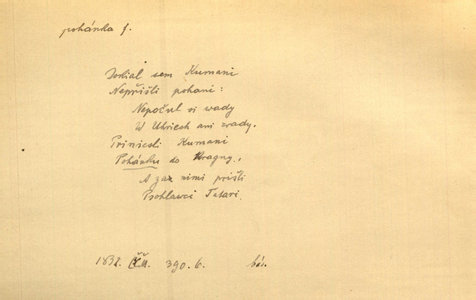 pohánka f.
Dokial sem Kumani
Nepřišli pohani:
Nepočul si wady
W Uhriech ani zwady.
Priniesli Kumani
Pohánku do Kragny,
A za nimi prišli
Psohlawci Tatari
1832. ČČM. 390. 6. bás.